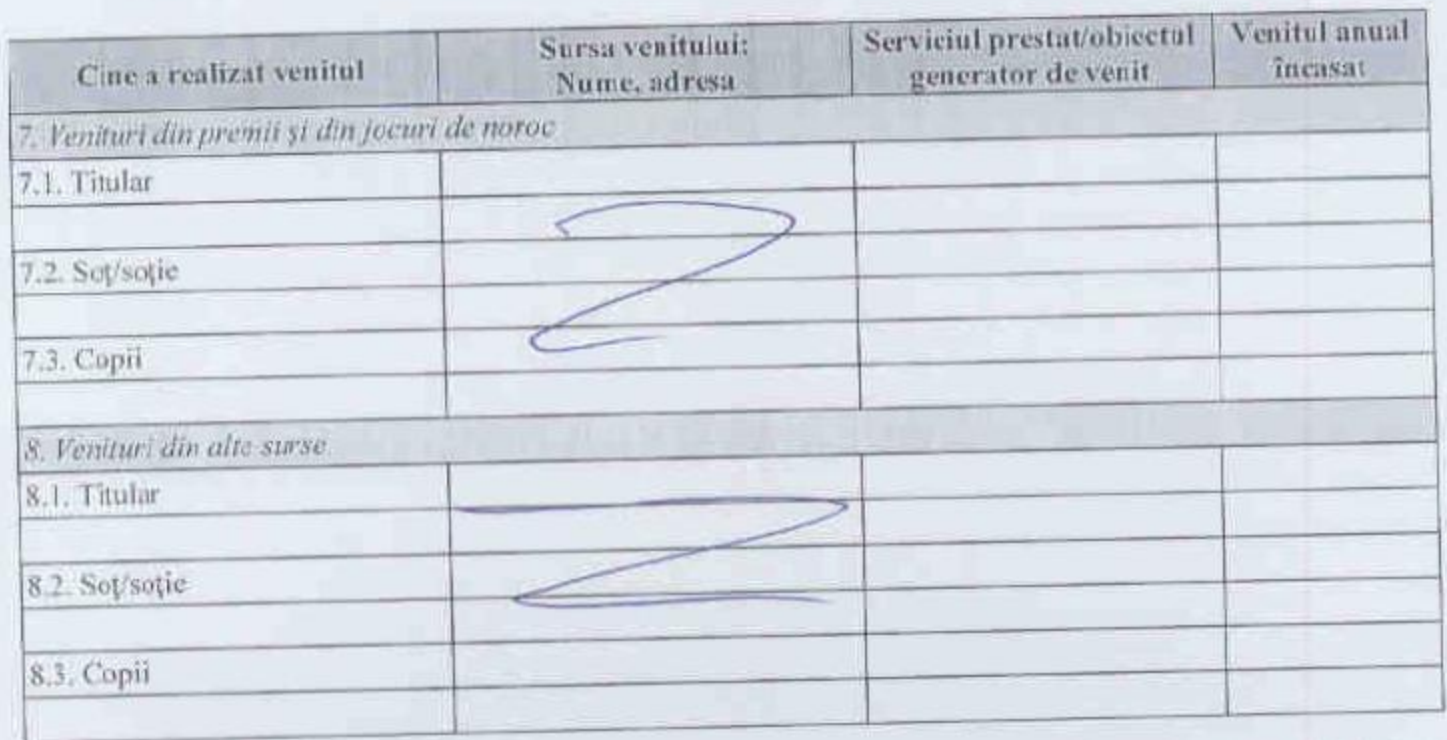 Cine a realizat venitul
Sursa venitului:
Nume, adresa
Serviciul prestat/obiectul
generator de venit
Venitul anual
încasat
7. Venituri din premii și din jocuri de noroc
7.1. Titular
7.2. Soț/soție
7.3. Copii
8. Venituri din alte surse
8.1. Titular
8.2. Soț/soție
8.3. Copii